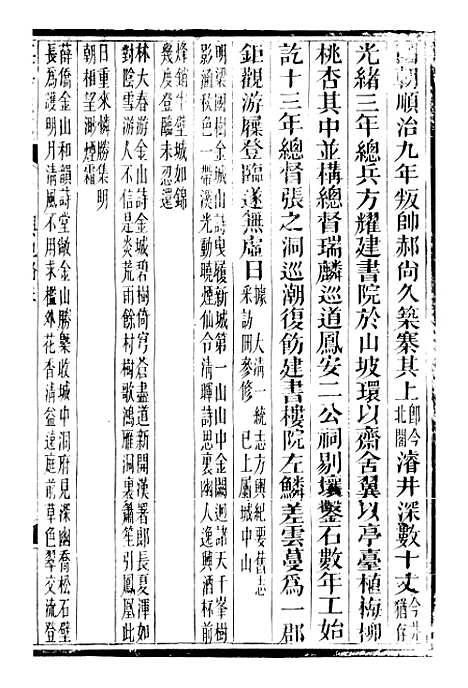 國朝順治九年叛帥郝尚久築寨其上卽今北閣濬井深數十丈今井猶存
光緒三年總兵方耀建書院於山坡環以齋舍翼以亭臺植梅柳
桃杏其中並構總督瑞麟巡道鳳安二公祠剔壤鑿石數年工始
訖十三年總督張之洞巡潮復飭建書樓院左鱗差雲蔓爲一郡
鉅觀游屨登臨遂無虛日據大淸一統志方輿紀要舊志采訪冊參修 已上屬城中山
明梁國樹金山詩曳履新城第一山山中金闕迥諸天千峯樹
影連秋色一帶溪光動曉煙仙令淸暉詩思裏幽人逸興酒杯前
烽銷斗壁城如錦
幾度登臨未忍還
林大春游金山詩金城碧樹倚穹蒼盡道新開漢署郞長夏渾如
對陰雪游人不信是炎荒雨餘村樹歌鴻雁洞裏簫笙引鳳凰此
日重來憐勝集明
朝相望渺煙霜
薛僑金山和韻詩堂敞金山勝槩收城中洞府見深幽喬松石壁
長爲護明月淸風不用求檻外花香淸益遠庭前草色翠交流登